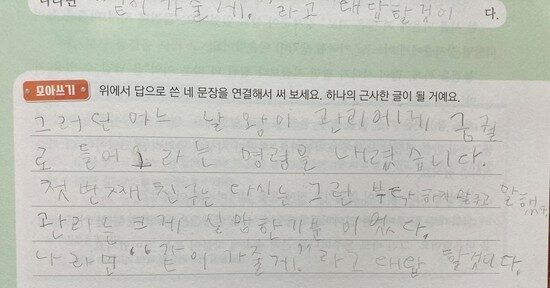 나라면 "같이 가줄게."라고 대답할것이 다.
모아쓰기 위에서 답으로 쓴 네 문장을 연결해서 써 보세요. 하나의 근사한 글이 될 거예요.
그러던 어느 날 왕이 관리에게 궁궐
로 들어오라는 명령을 내렸습니다.
첫 번째 친구는 다시는 그런 부탁하지 말라고 말했다
관리는 크게 실망한기분이었다.
나라면 "같이 가줄게."라고 대답 할것이다.